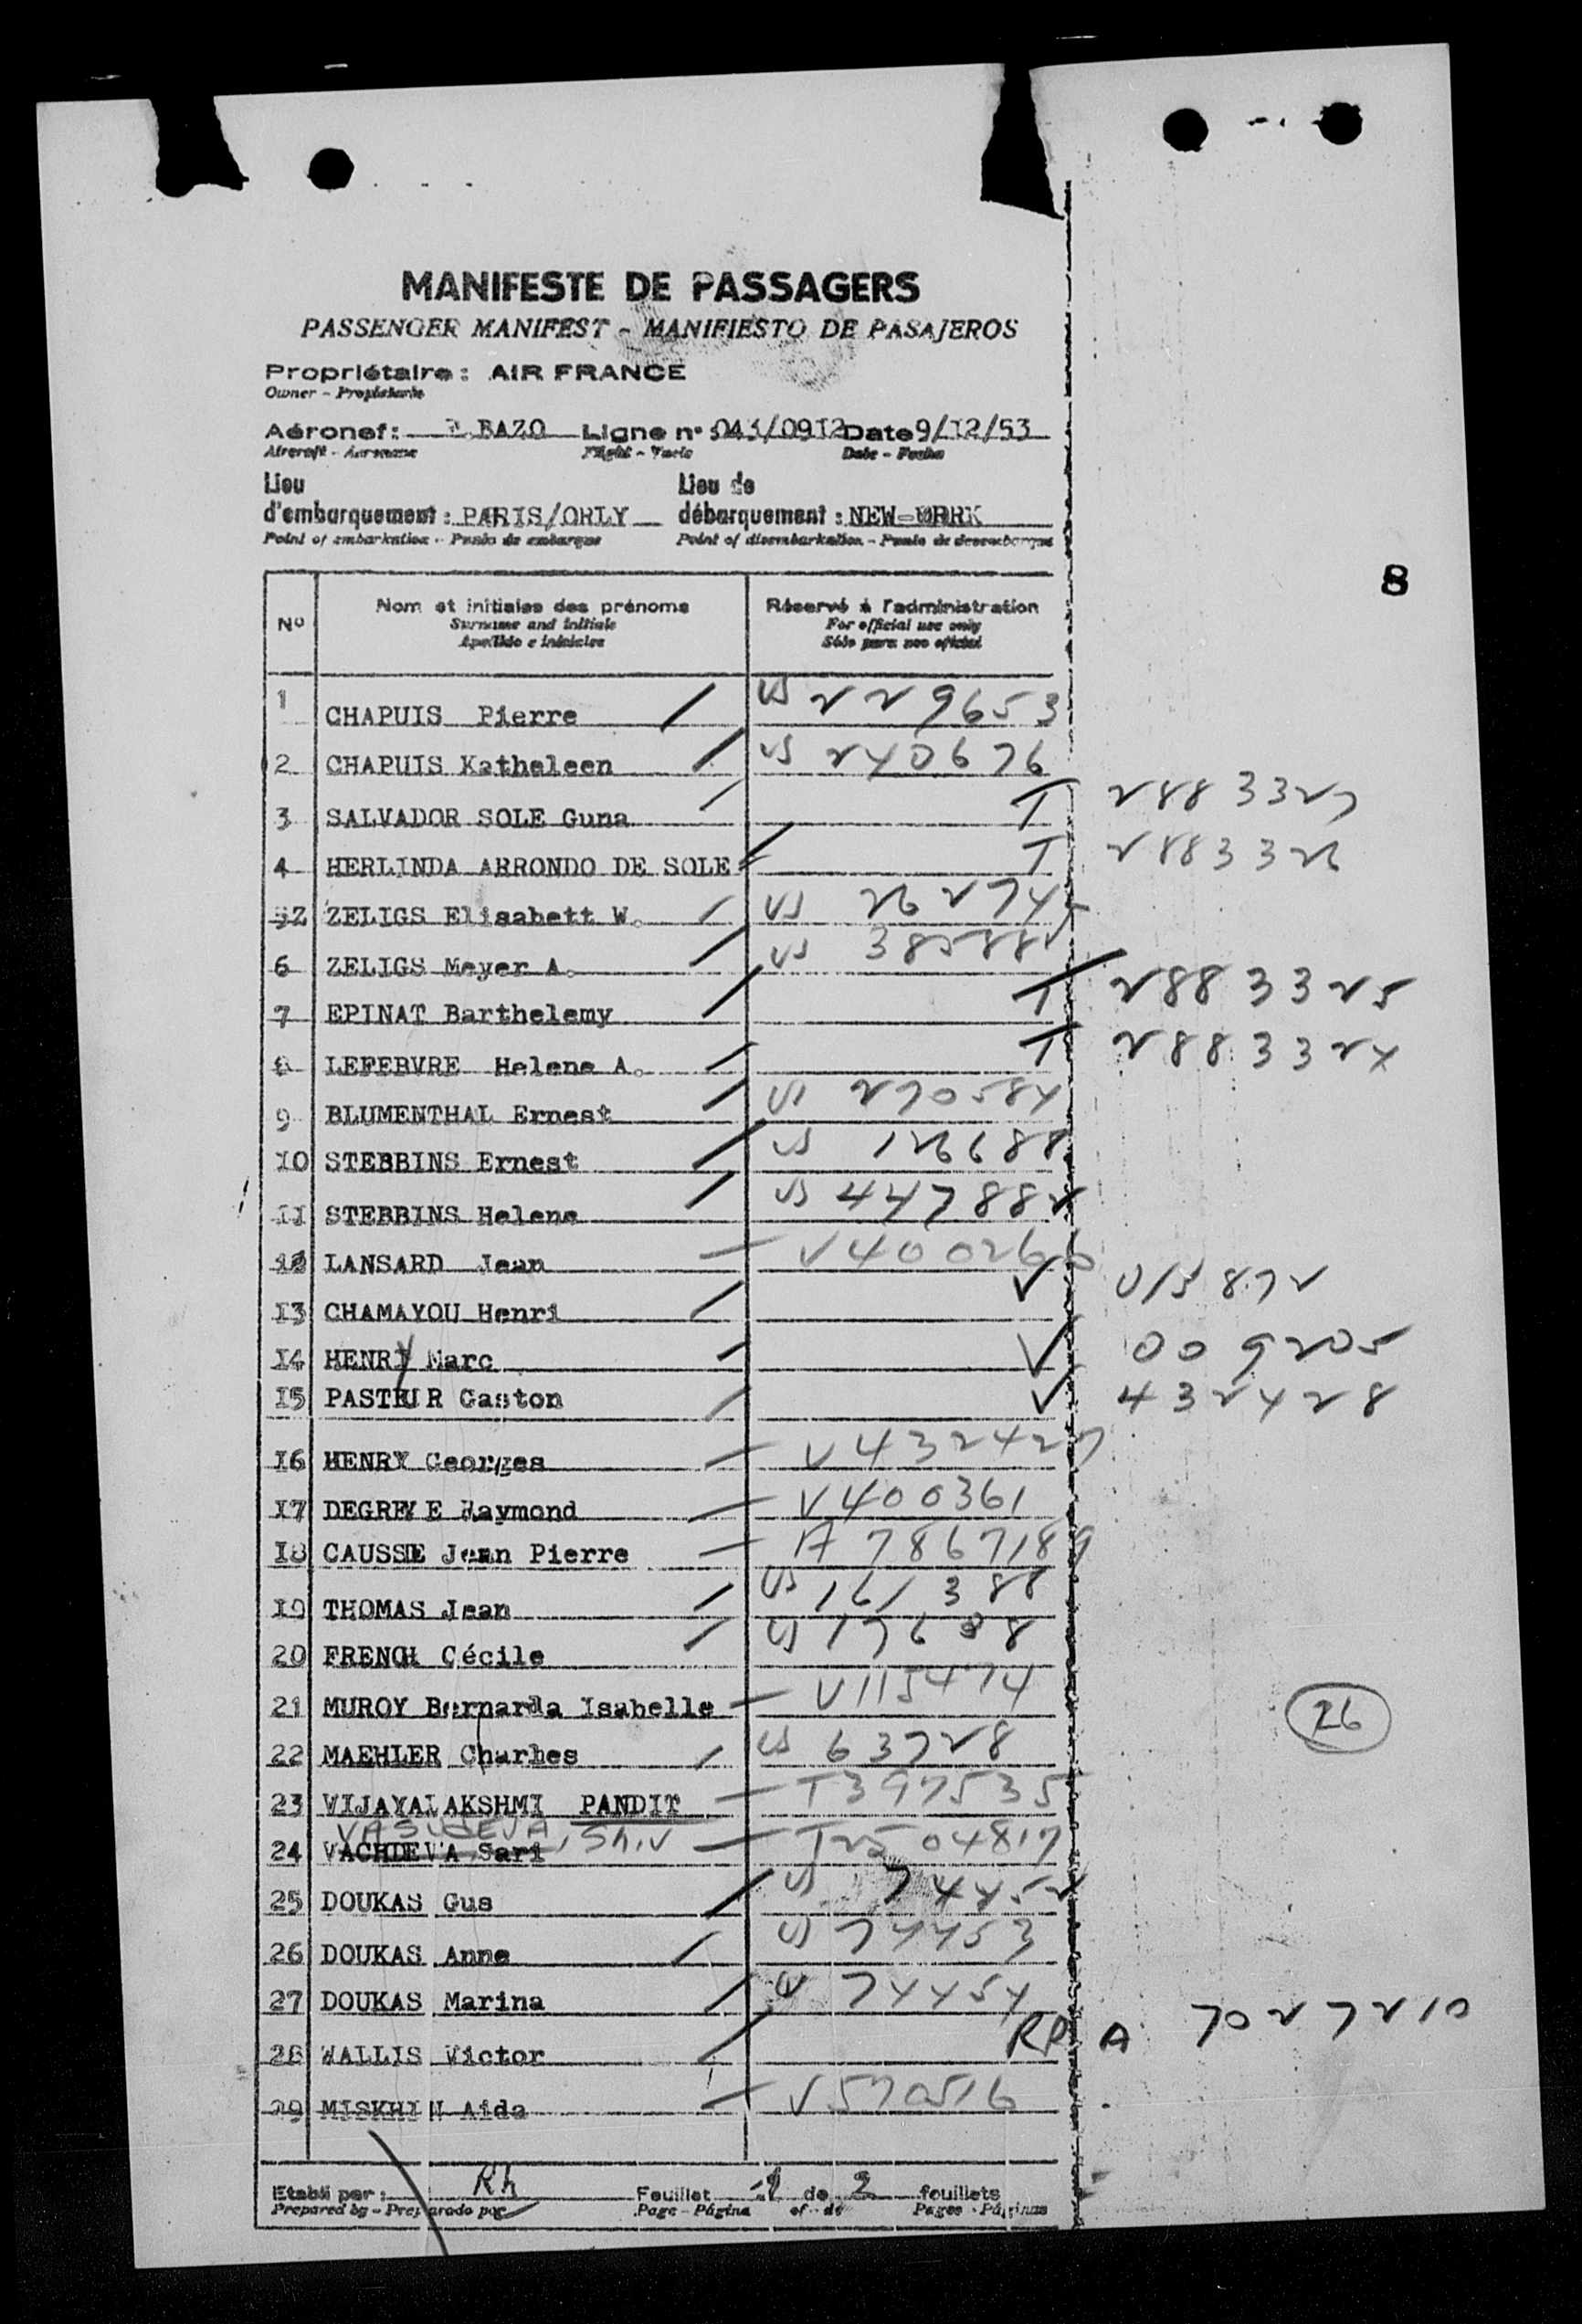 MANIFESTE DE PASSAGERS
PASSENGER MANIFEST - MANIFIESTO DE PASAJEROS
Propriétaire : AIR FRANCE
Owner - Propietario
Aéronef: BAZO Ligne n° 043/09I2 Date 9/I2/53
Aircraft - Aeronave Flight - Vuelo Date - Fecha
Lieu Lieu de
d'embarquement : PARIS/ORLY débarquement : NEW-
Point of embarkation - Punto de embarque Point of disembarkation - Punto de desembarque
8
N° Nom et initiales des prénoms Réservé à l'administration
Surname and initials For official use only
Apellido e iniciales Sólo para uso oficial
1 CHAPUIS Pierre / US 229653
2 CHAPUIS Katheleen / US 240676
3 SALVADOR SOLE Guna / T 2883327
4 HERLINDA ARRONDO DE SOLE / T 2883326
ZELIGS Elisabett W. / US
6 ZELIGS Meyer A. / US
7 EPINAT Barthelemy / T 2883325
8 LEFEBVRE Helene A. / T 2883324
9 BLUMENTHAL Ernest / US 270584
I0 STEBBINS Ernest / US 126688
II STEBBINS Helene / US 447882
12 LANSARD Jean — V 400266
I3 CHAMAYOU Henri / V 015872
I4 HENRY Marc / V 009205
I5 PASTEUR Gaston / V 432428
I6 HENRY Georges — V 432427
I7 DEGREVE Raymond — V400361
I8 CAUSSE Jean Pierre — A 7867189
I9 THOMAS Jean / US 161388
20 FRENCH Cécile / US
21 MUROY Bernarda Isabelle — V115474
26
22 MAEHLER Charles / US 63728
23 VIJAYALAKSHMI PANDIT — T397535
VASUDEVA, Shiv
24 VACHDEVA Sari — T2504817
25 DOUKAS Gus / US 74452
26 DOUKAS Anne / US 74453
27 DOUKAS Marina / US 74454
28 WALLIS Victor / RP A 7027210
29 MISKHIN Aida — V570516
Etabli par : Rh Feuillet 1 de 2 feuillets
Prepared by - Preparado por Page - Página of - de Pages - Páginas